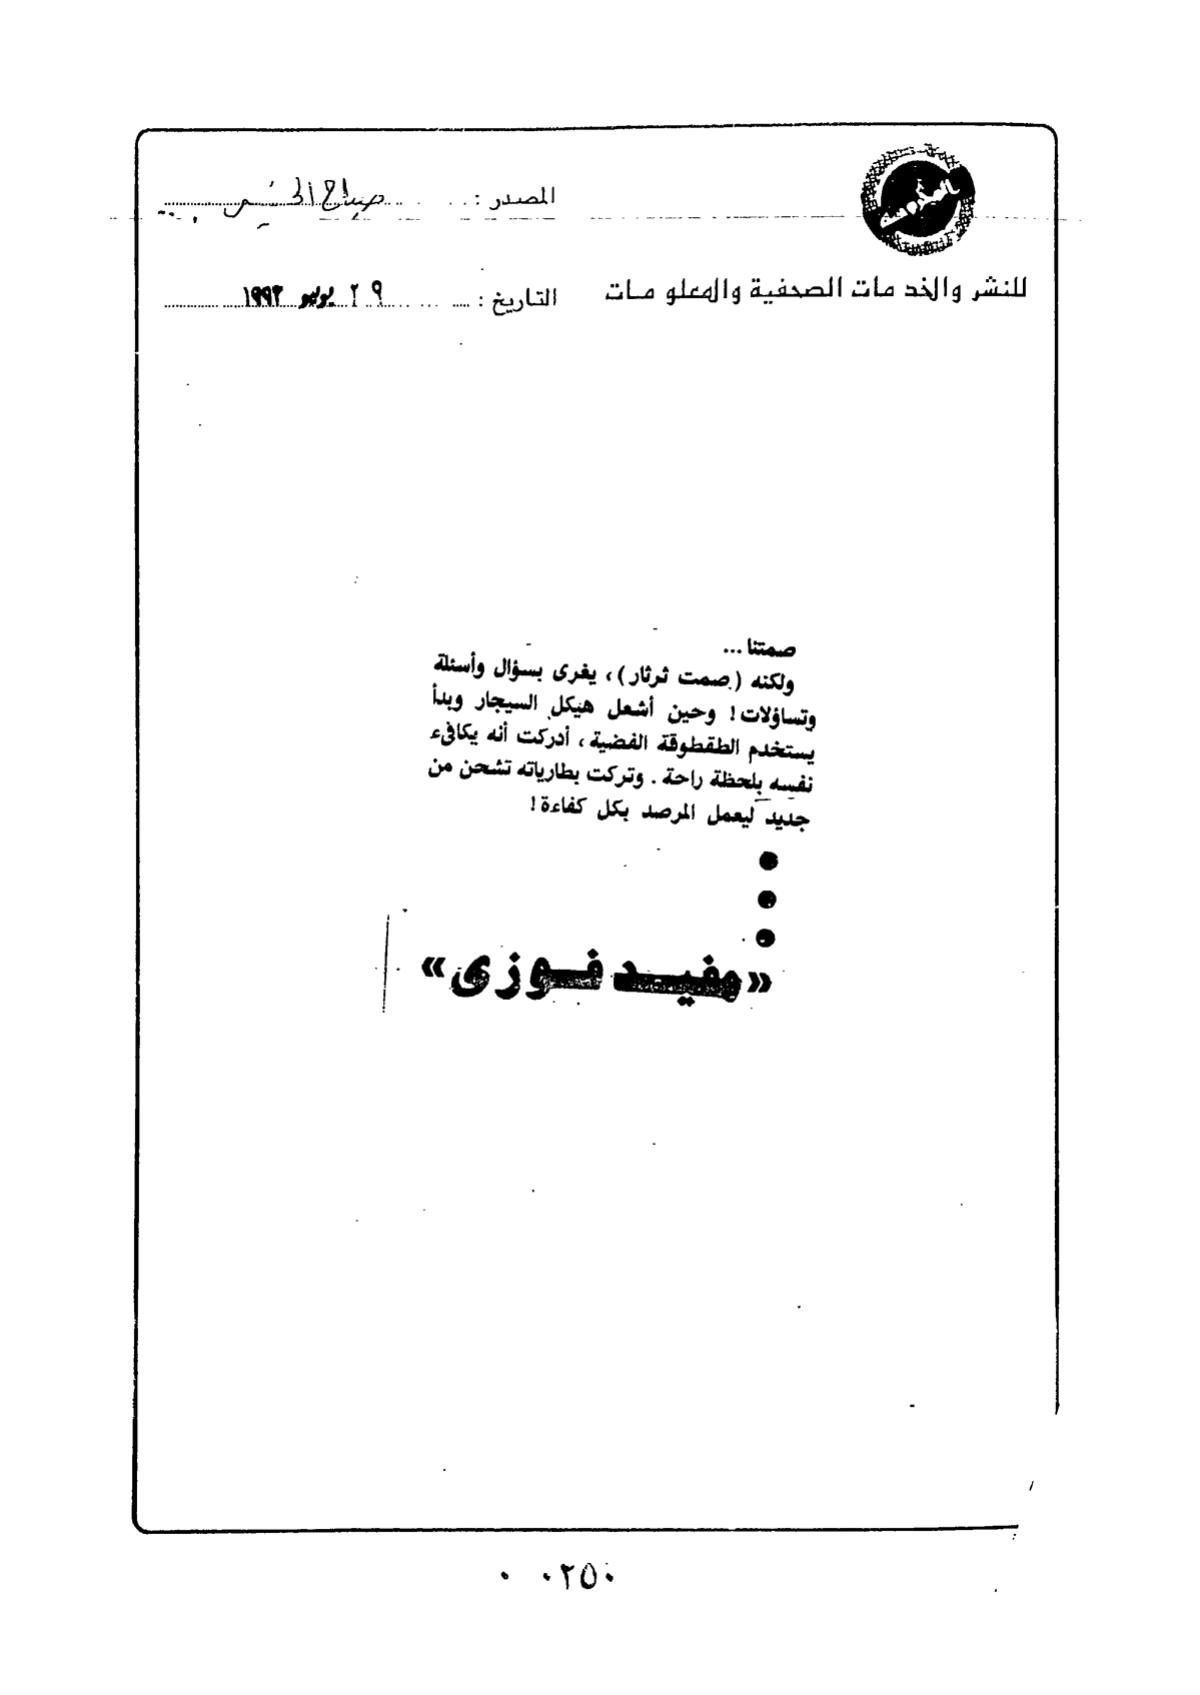 المصدر : صباح الخير
للنشر والخدمات الصحفية والمعلومات
التاريخ : ٢٩ يوليو ١٩٩٣
صمتنا ...
ولكنه ( صمت ثرثار ) ، يغرى بسؤال وأسئلة
وتساؤلات ! وحين أشعل هيكل السيجار وبدأ
يستخدم الطقطوقة الفضية ، أدركت أنه يكافىء
نفسه بلحظة راحة . وتركت بطارياته تشحن من
جديد ليعمل المرصد بكل كفاءة !
●
●
●
«مفيد فوزى»
٠ ٠٢٥٠